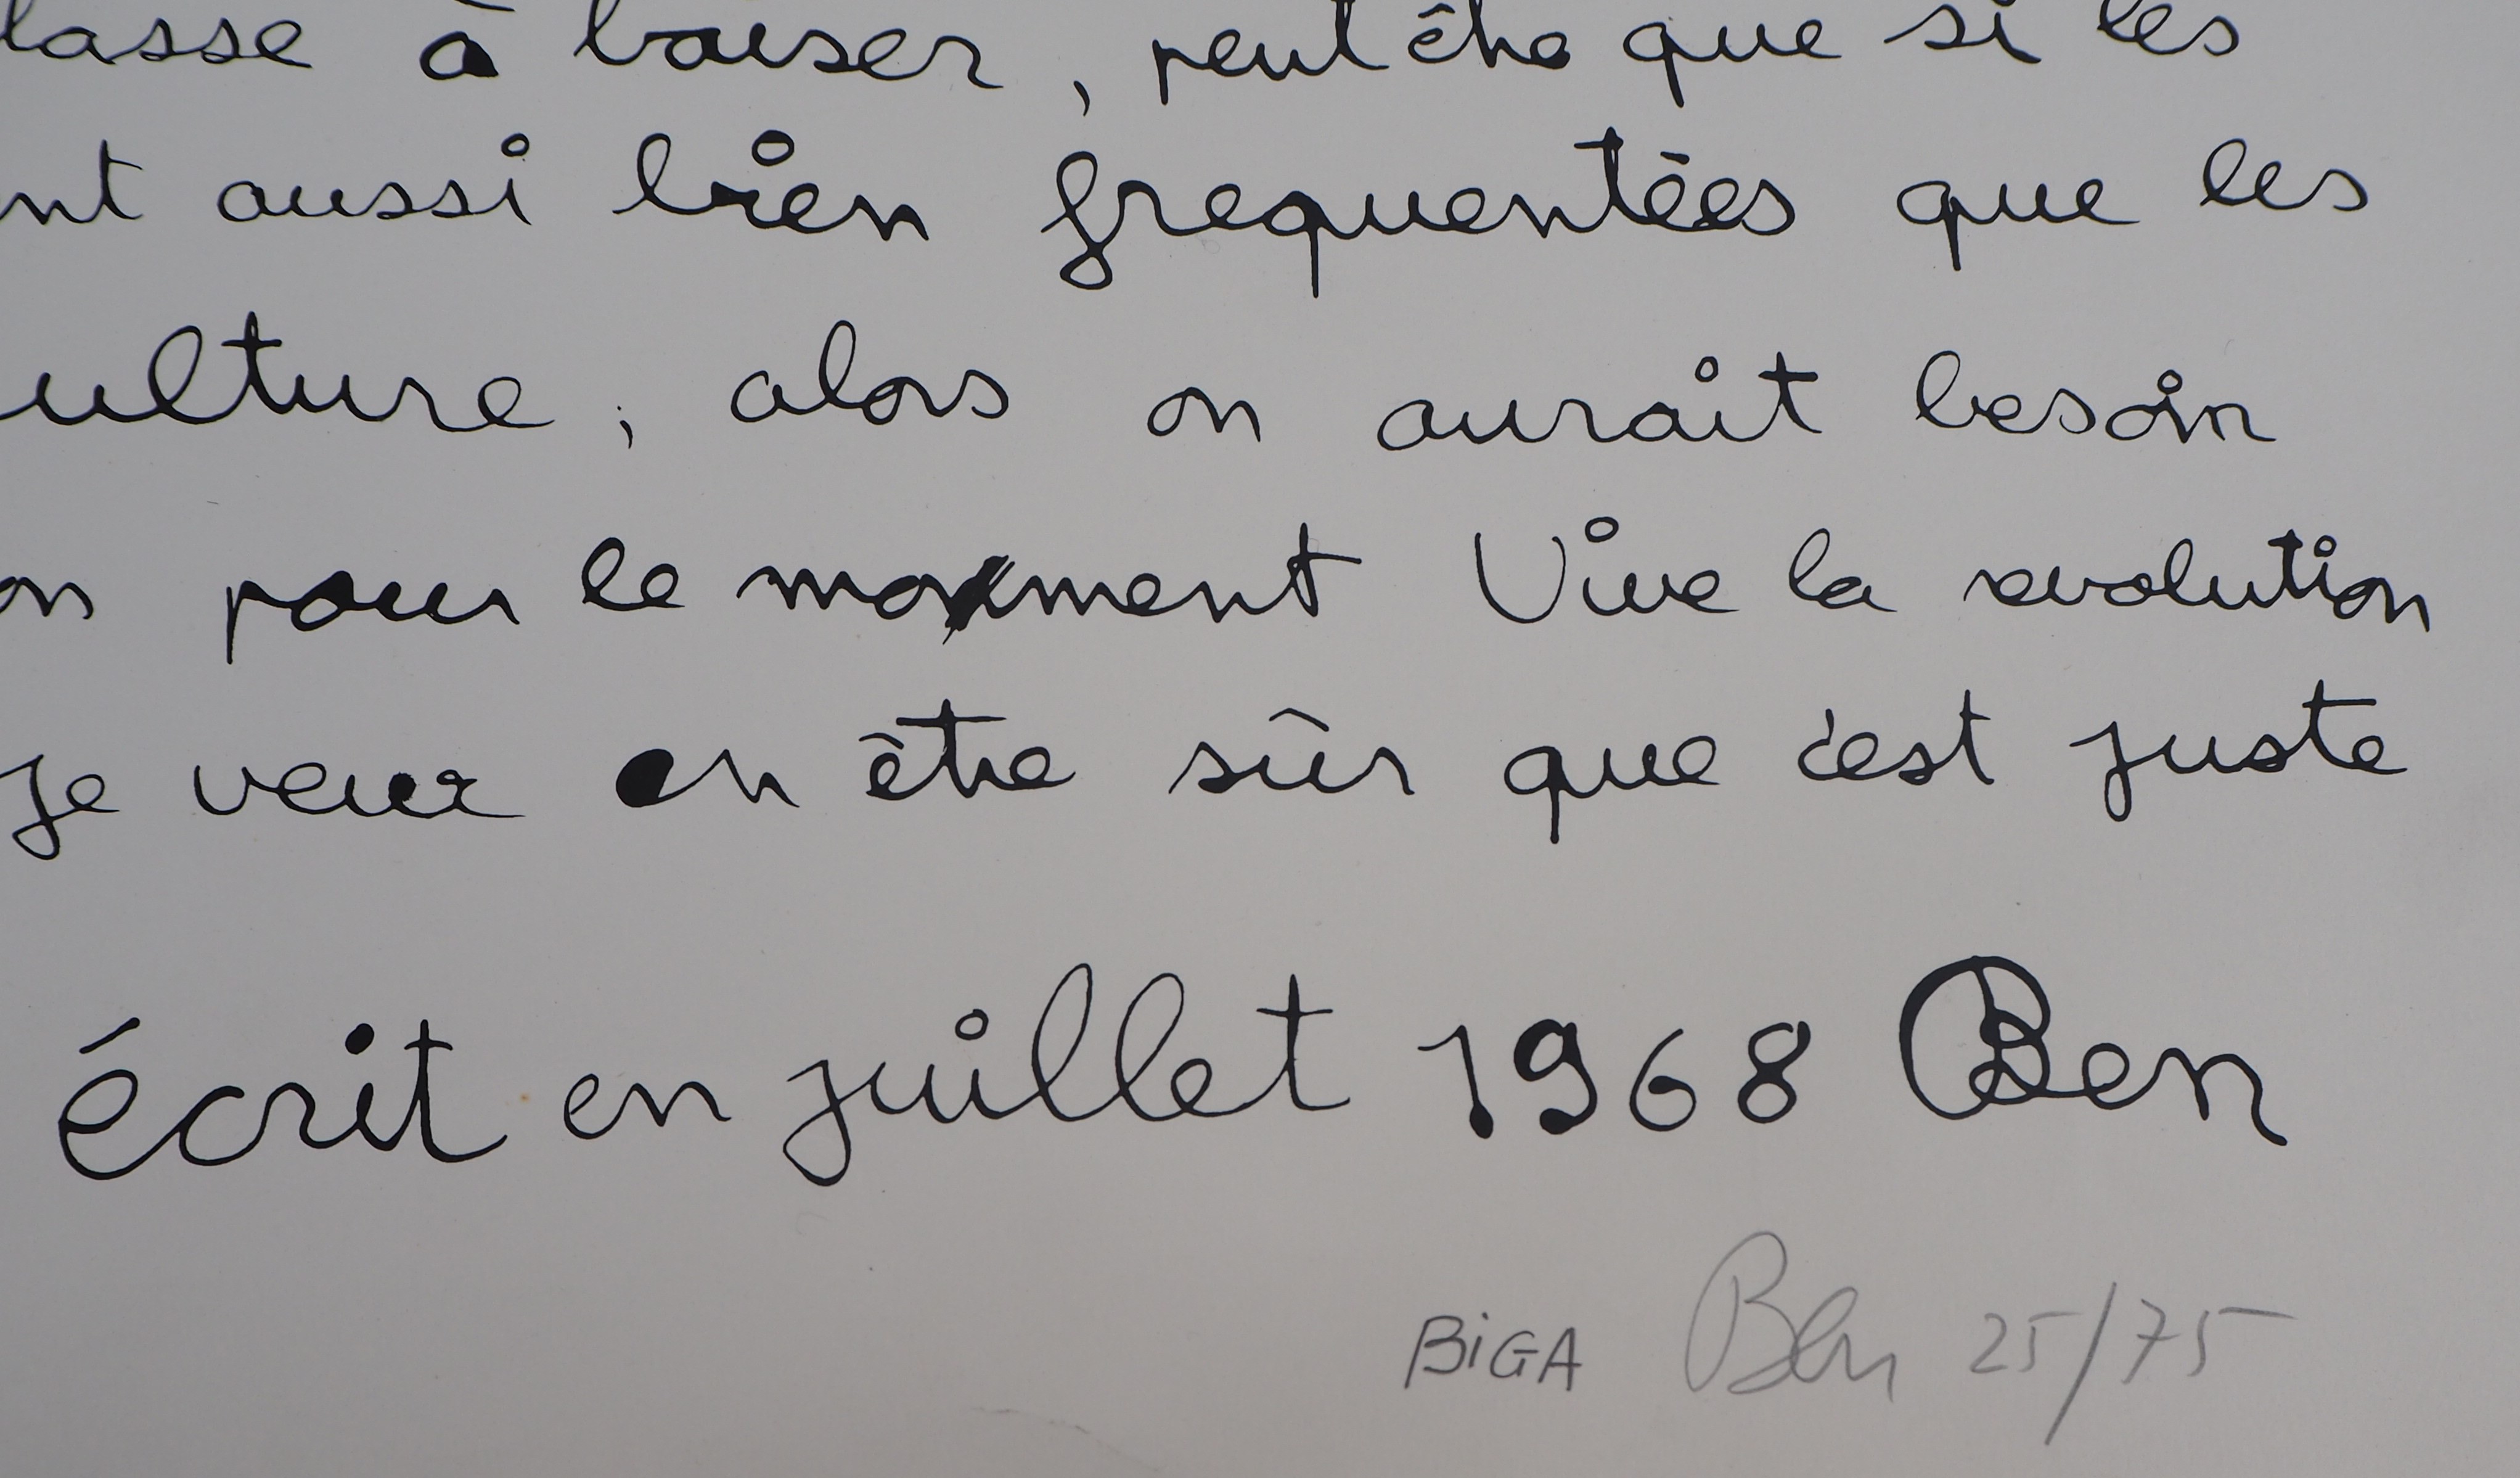 lasse à baiser, peut être que si les
nt aussi bien frequentées que les
ulture, alors on aurait besoin
on pour le moment Vive la revolution
Je veux en être sûr que c'est juste
écrit en juillet 1968 Ben
BiGA Ben 25/75